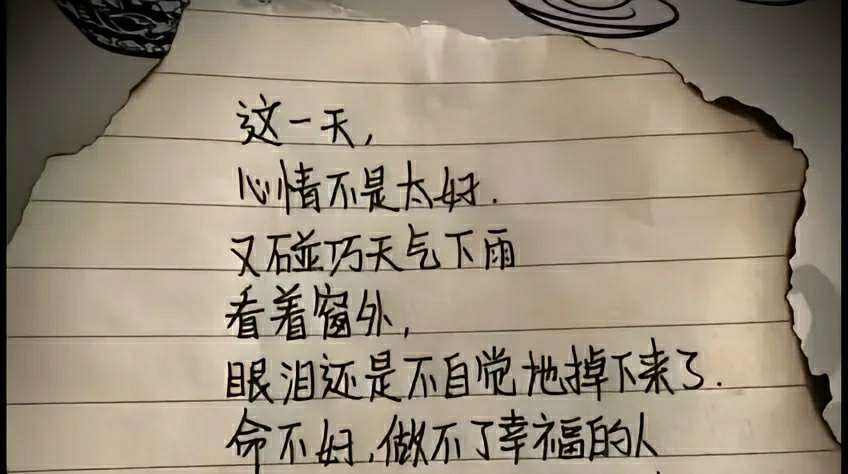 这一天,
心情不是太好.
又碰巧天气下雨
看着窗外,
眼泪还是不自觉地掉下来了.
命不好,做不了幸福的人